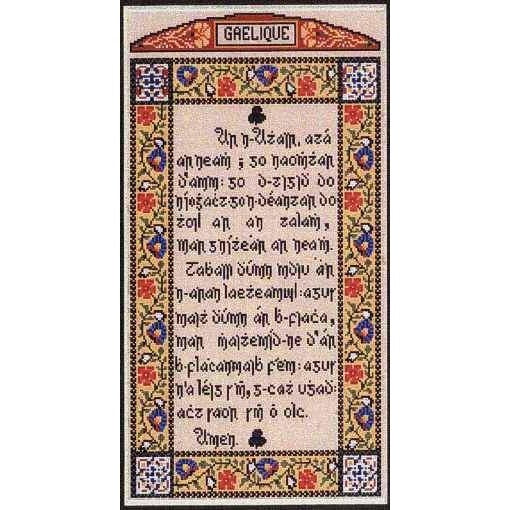 GAELIQUE
Ar n-Aṫair, atá
ar neaṁ ; go naoṁṫar
d'ainm: go d-tigiḋ do
ríoġaċt: go n-déantar do
ṫoil ar an talaṁ,
mar gníṫear ar neaṁ.
Tabair dúinn indiu ár
n-aran laeṫeaṁuil: agus
maiṫ dúinn ár b-fiaċa,
mar maiṫemíd-ne d'ár
b-fiaċaṁnaib féin: agus
n'a léig sinn, g-caṫuġaḋ:
aċt saor sinn ó olc.
Amen.